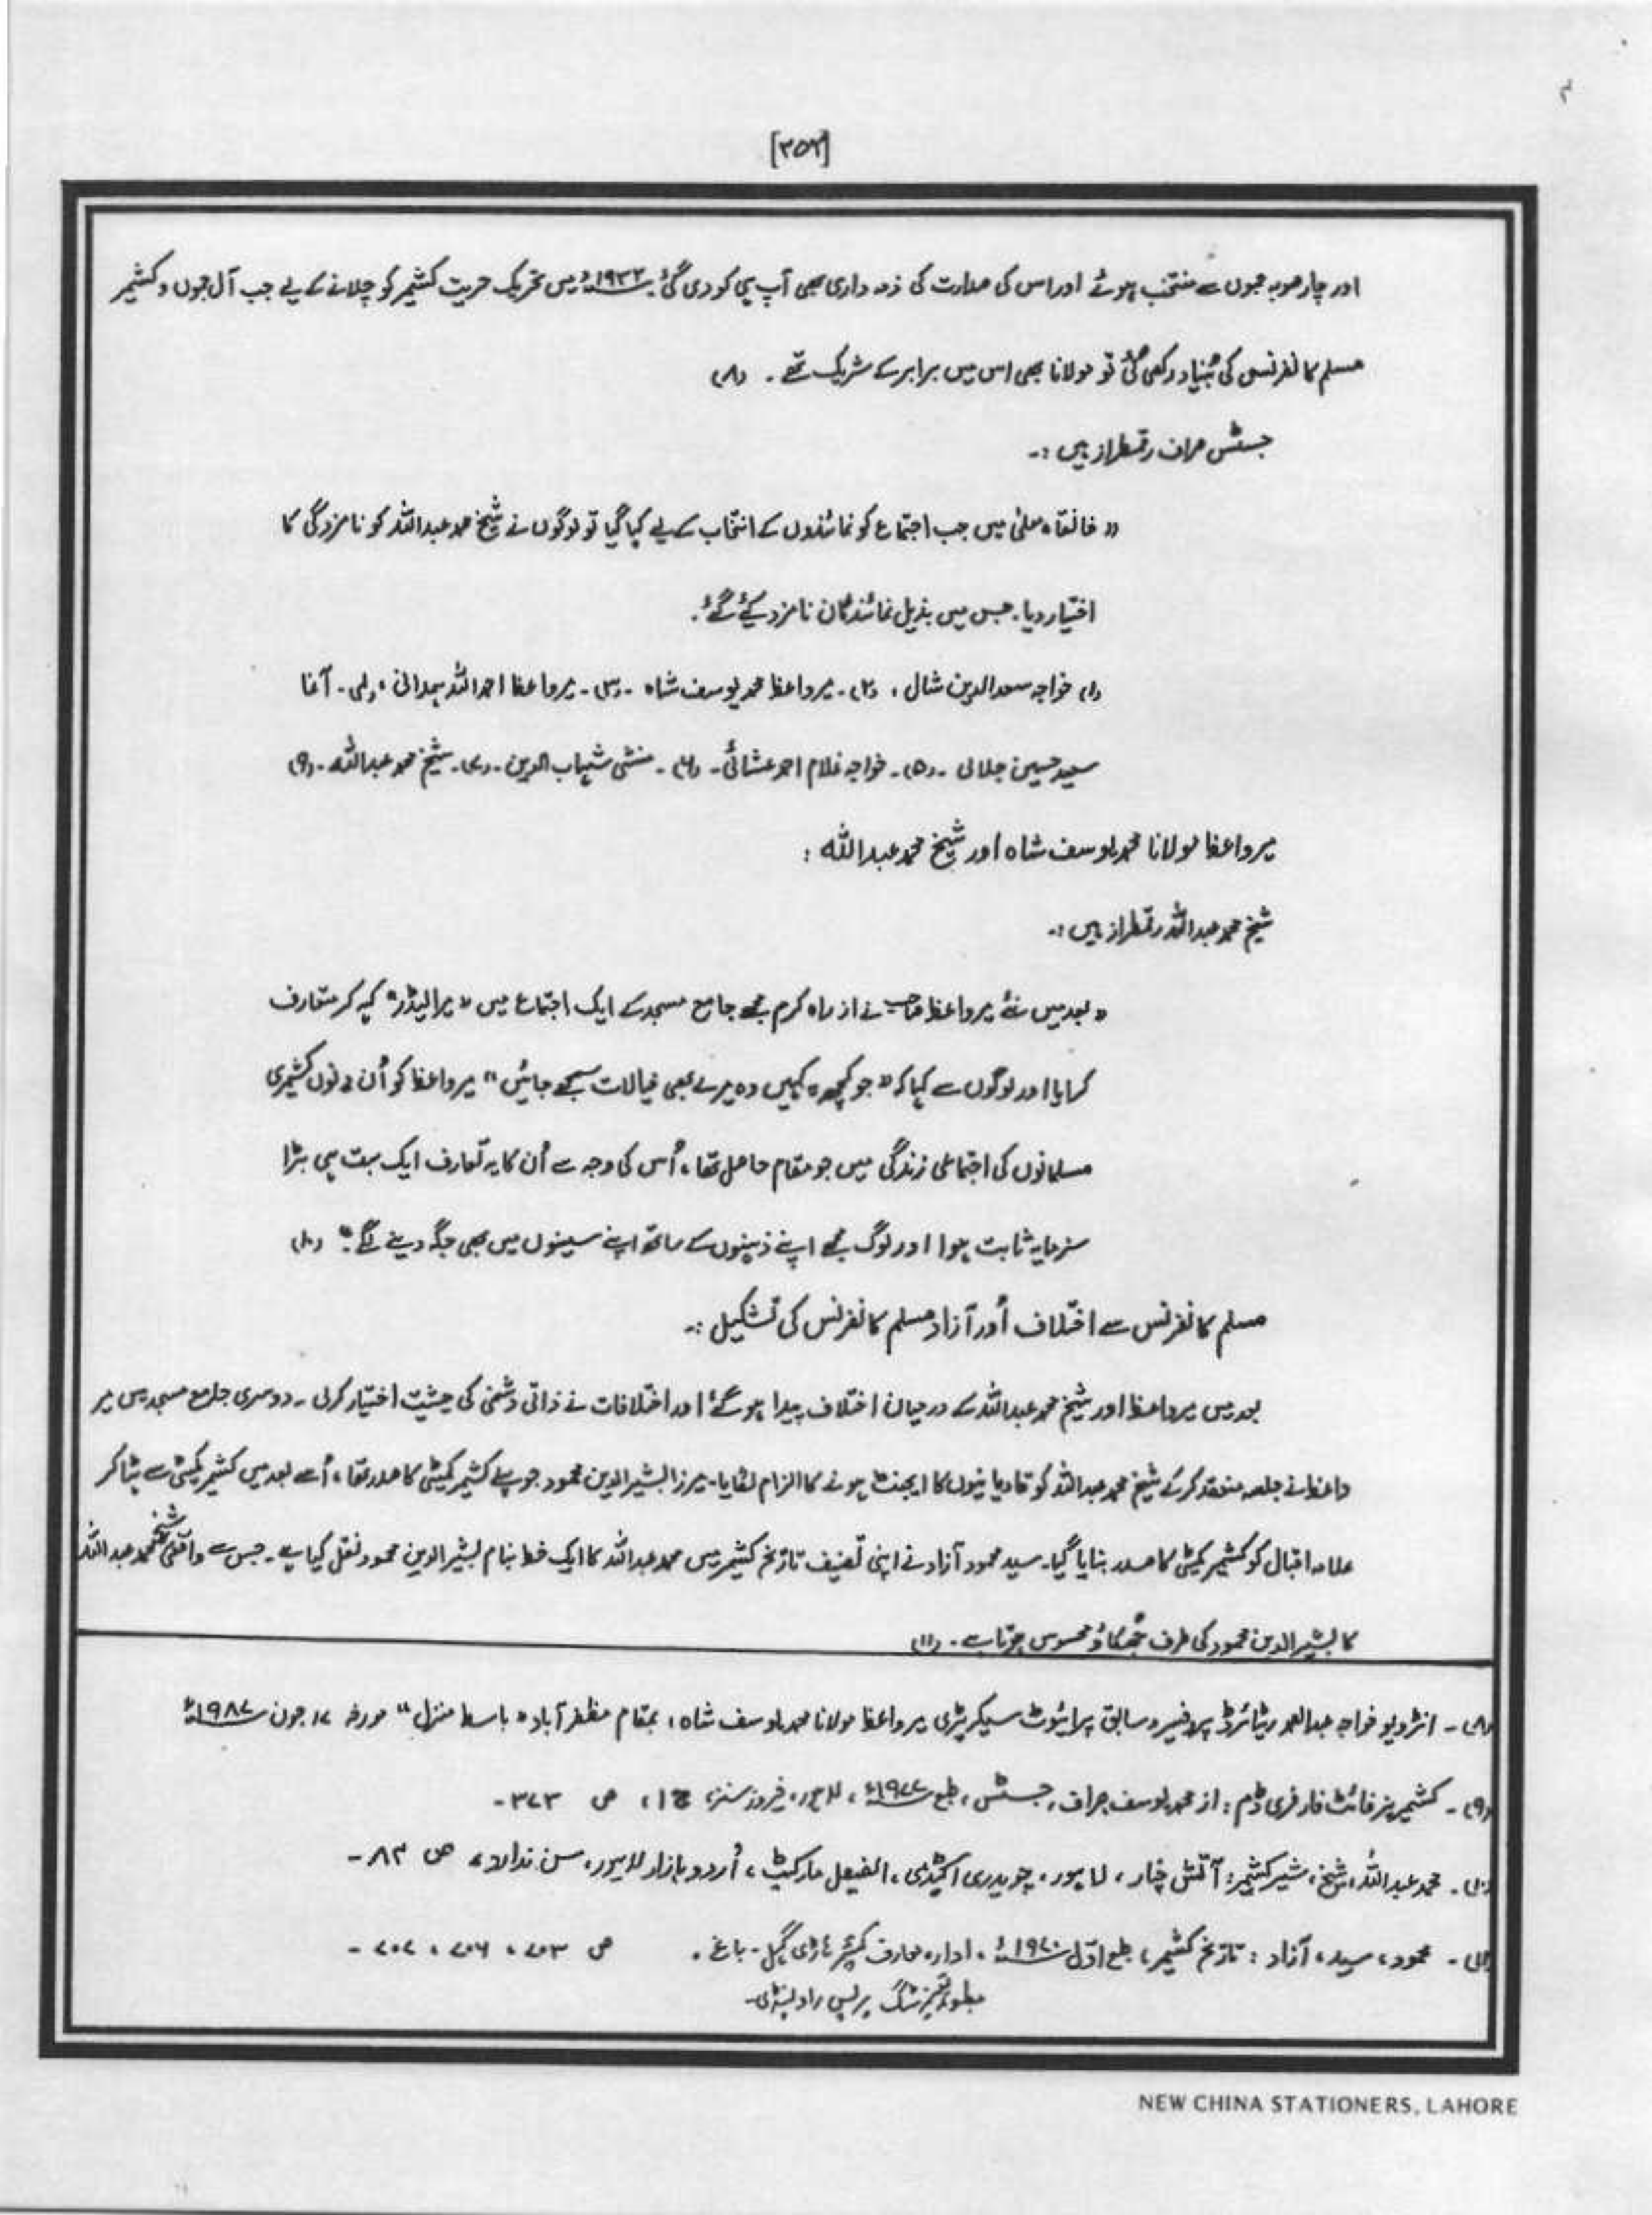 [۳۵۲]
اور چار صوبہ جموں سے منتخب ہوئے اور اس کی صدارت کی ذمہ داری بھی آپ ہی کو دی گئی۔ ۱۹۳۲ء میں تحریک حریت کشمیر کو چلانے کے لیے جب آل جموں و کشمیر
مسلم کانفرنس کی بُنیاد رکھی گئی تو مولانا بھی اس میں برابر کے شریک تھے۔ (۸)
جسٹس صراف رقمطراز ہیں :-
" خانقاہ معلیٰ میں جب اجتماع کو نمائندوں کے انتخاب کے لیے کہا گیا تو لوگوں نے شیخ محمد عبداللہ کو نامزدگی کا
اختیار دیا۔ جس میں بذیل نمائندگان نامزد کیے گئے۔
(۱) خواجہ سعد الدین شال ، (۲)۔ میرواعظ محمد یوسف شاہ ۔ (۳)۔ میرواعظ احمد اللہ ہمدانی ، (۴)۔ آغا
سید حسین جلالی ۔ (۵)۔ خواجہ غلام احمد عشائی۔ (۶)۔ منشی شہاب الدین۔ (۷)۔ شیخ محمد عبداللہ۔ (۹)
میرواعظ مولانا محمد یوسف شاہ اور شیخ محمد عبداللہ :
شیخ محمد عبداللہ رقمطراز ہیں :-
" بعد میں نئے میرواعظ صاحب نے از راہ کرم مجھے جامع مسجد کے ایک اجتماع میں " میرا لیڈر" کہہ کر متعارف
کرایا اور لوگوں سے کہا کہ " جو کچھ یہ کہیں وہ میرے بھی خیالات سمجھے جائیں " میرواعظ کو اُن دنوں کشمیری
مسلمانوں کی اجتماعی زندگی میں جو مقام حاصل تھا، اُس کی وجہ سے اُن کا یہ تعارف ایک بہت ہی بڑا
سرمایہ ثابت ہوا اور لوگ مجھے اپنے ذہنوں کے ساتھ اپنے سینوں میں بھی جگہ دینے لگے۔" (۱۰)
مسلم کانفرنس سے اختلاف اور آزاد مسلم کانفرنس کی تشکیل :-
بعد میں میرواعظ اور شیخ محمد عبداللہ کے درمیان اختلاف پیدا ہو گئے اور اختلافات نے ذاتی دشمنی کی حیثیت اختیار کرلی ۔ دوسری جامع مسجد میں میر
واعظ نے جلسہ منعقد کرکے شیخ محمد عبداللہ کو قادیانیوں کا ایجنٹ ہونے کا الزام لگایا۔ میرزا بشیر الدین محمود جو پہلے کشمیر کمیٹی کا صدر تھا، اُسے بعد میں کشمیر کمیٹی سے ہٹا کر
علامہ اقبال کو کشمیر کمیٹی کا صدر بنایا گیا۔ سید محمود آزاد نے اپنی تصنیف تاریخ کشمیر میں محمد عبداللہ کا ایک خط بنام بشیر الدین محمود نقل کیا ہے۔ جس سے واقعی شیخ محمد عبداللہ
کا بشیر الدین محمود کی طرف جُھکاؤ محسوس ہوتا ہے۔ (۱۱)
(۸)۔ انٹرویو خواجہ عبدالصمد ریٹائرڈ پروفیسر و سابق پرائیوٹ سیکریٹری میرواعظ مولانا محمد یوسف شاہ ، بمقام مظفر آباد " باسط منزل " مورخہ ۱۷ جون ۱۹۸۷ء
(۹)۔ کشمیریز فائٹ فار فری ڈم : از محمد یوسف صراف، جسٹس، طبع ۱۹۷۷ء ، لاہور، فیروز سنز، ج ۱ ، ص ۳۷۳ -
(۱۰)۔ محمد عبداللہ ، شیخ ، شیر کشمیر: آتش چنار ، لاہور ، چوہدری اکیڈمی ، الفیصل مارکیٹ ، اُردو بازار لاہور، سن ندارد ، ص ۸۳ -
(۱۱)۔ محمود، سید، آزاد : تاریخ کشمیر ، طبع اوّل ۱۹۷۰ء ، ادارہ معارف کشمیر ہاڑی گہل - باغ ۔ ص ۷۰۳ ، ۷۰۶ ، ۷۰۷ -
پرنٹنگ پریس راولپنڈی۔
NEW CHINA STATIONERS, LAHORE